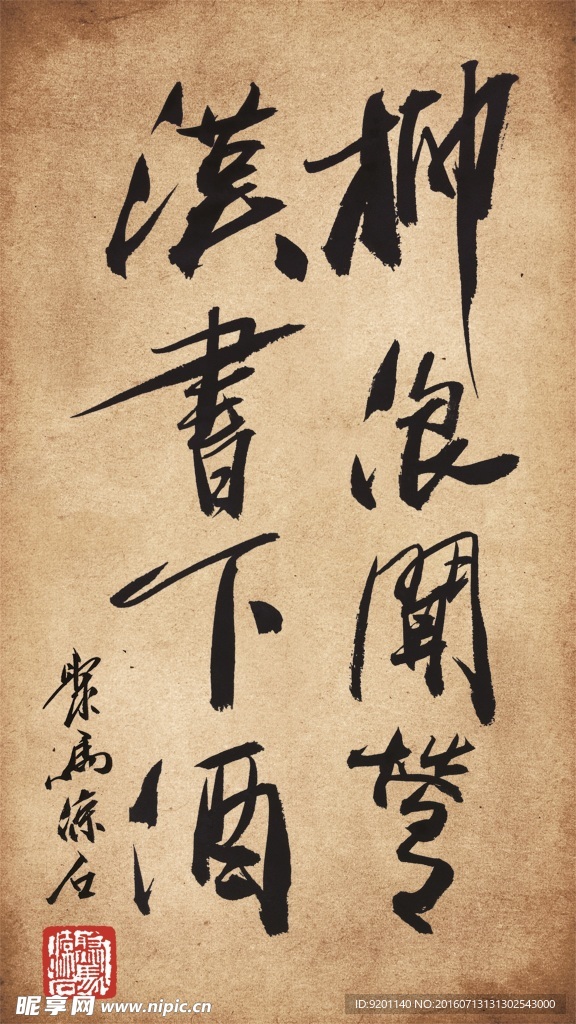 柳浪闻莺
漢書下酒
聚馬涼石
昵享网 www.nipic.cn
ID:9201140 NO:20160713131302543000